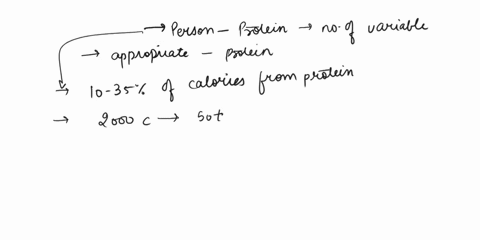 → Person - Protein → no. of variable
→ appropriate - protein
→ 10-35% of calories from protein
→ 2000 c → 50t